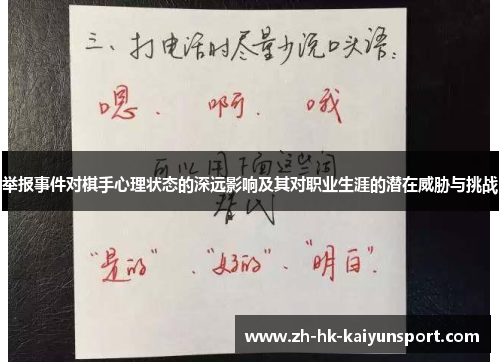 三、打电话时尽量少说口头语：
嗯. 啊. 哦
可以用下面这些词
举报事件对棋手心理状态的深远影响及其对职业生涯的潜在威胁与挑战
替代
“是的”、“好的”、“明白”.
www.zh-hk-kaiyunsport.com